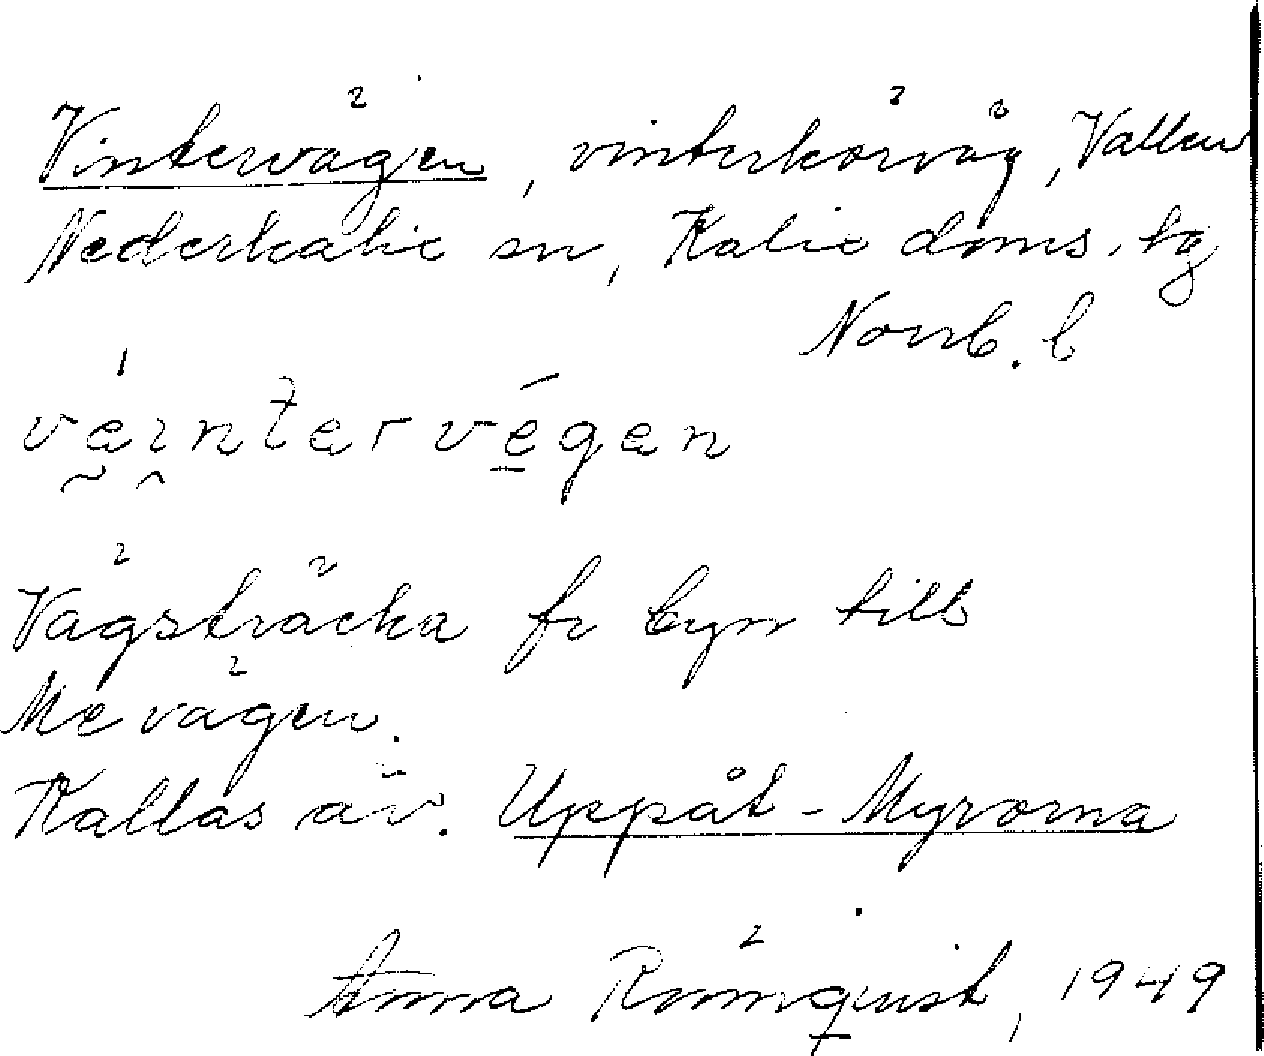 Vintervägen, vinterkörväg, Vallen
Nederkalix sn, Kalix doms. tg
Norrb. l
vä́i̯ntervégen
Vägsträcka fr byn till
Mevägen.
Kallas äv. Uppåt-Myrorna
Anna Rönnquist, 1949